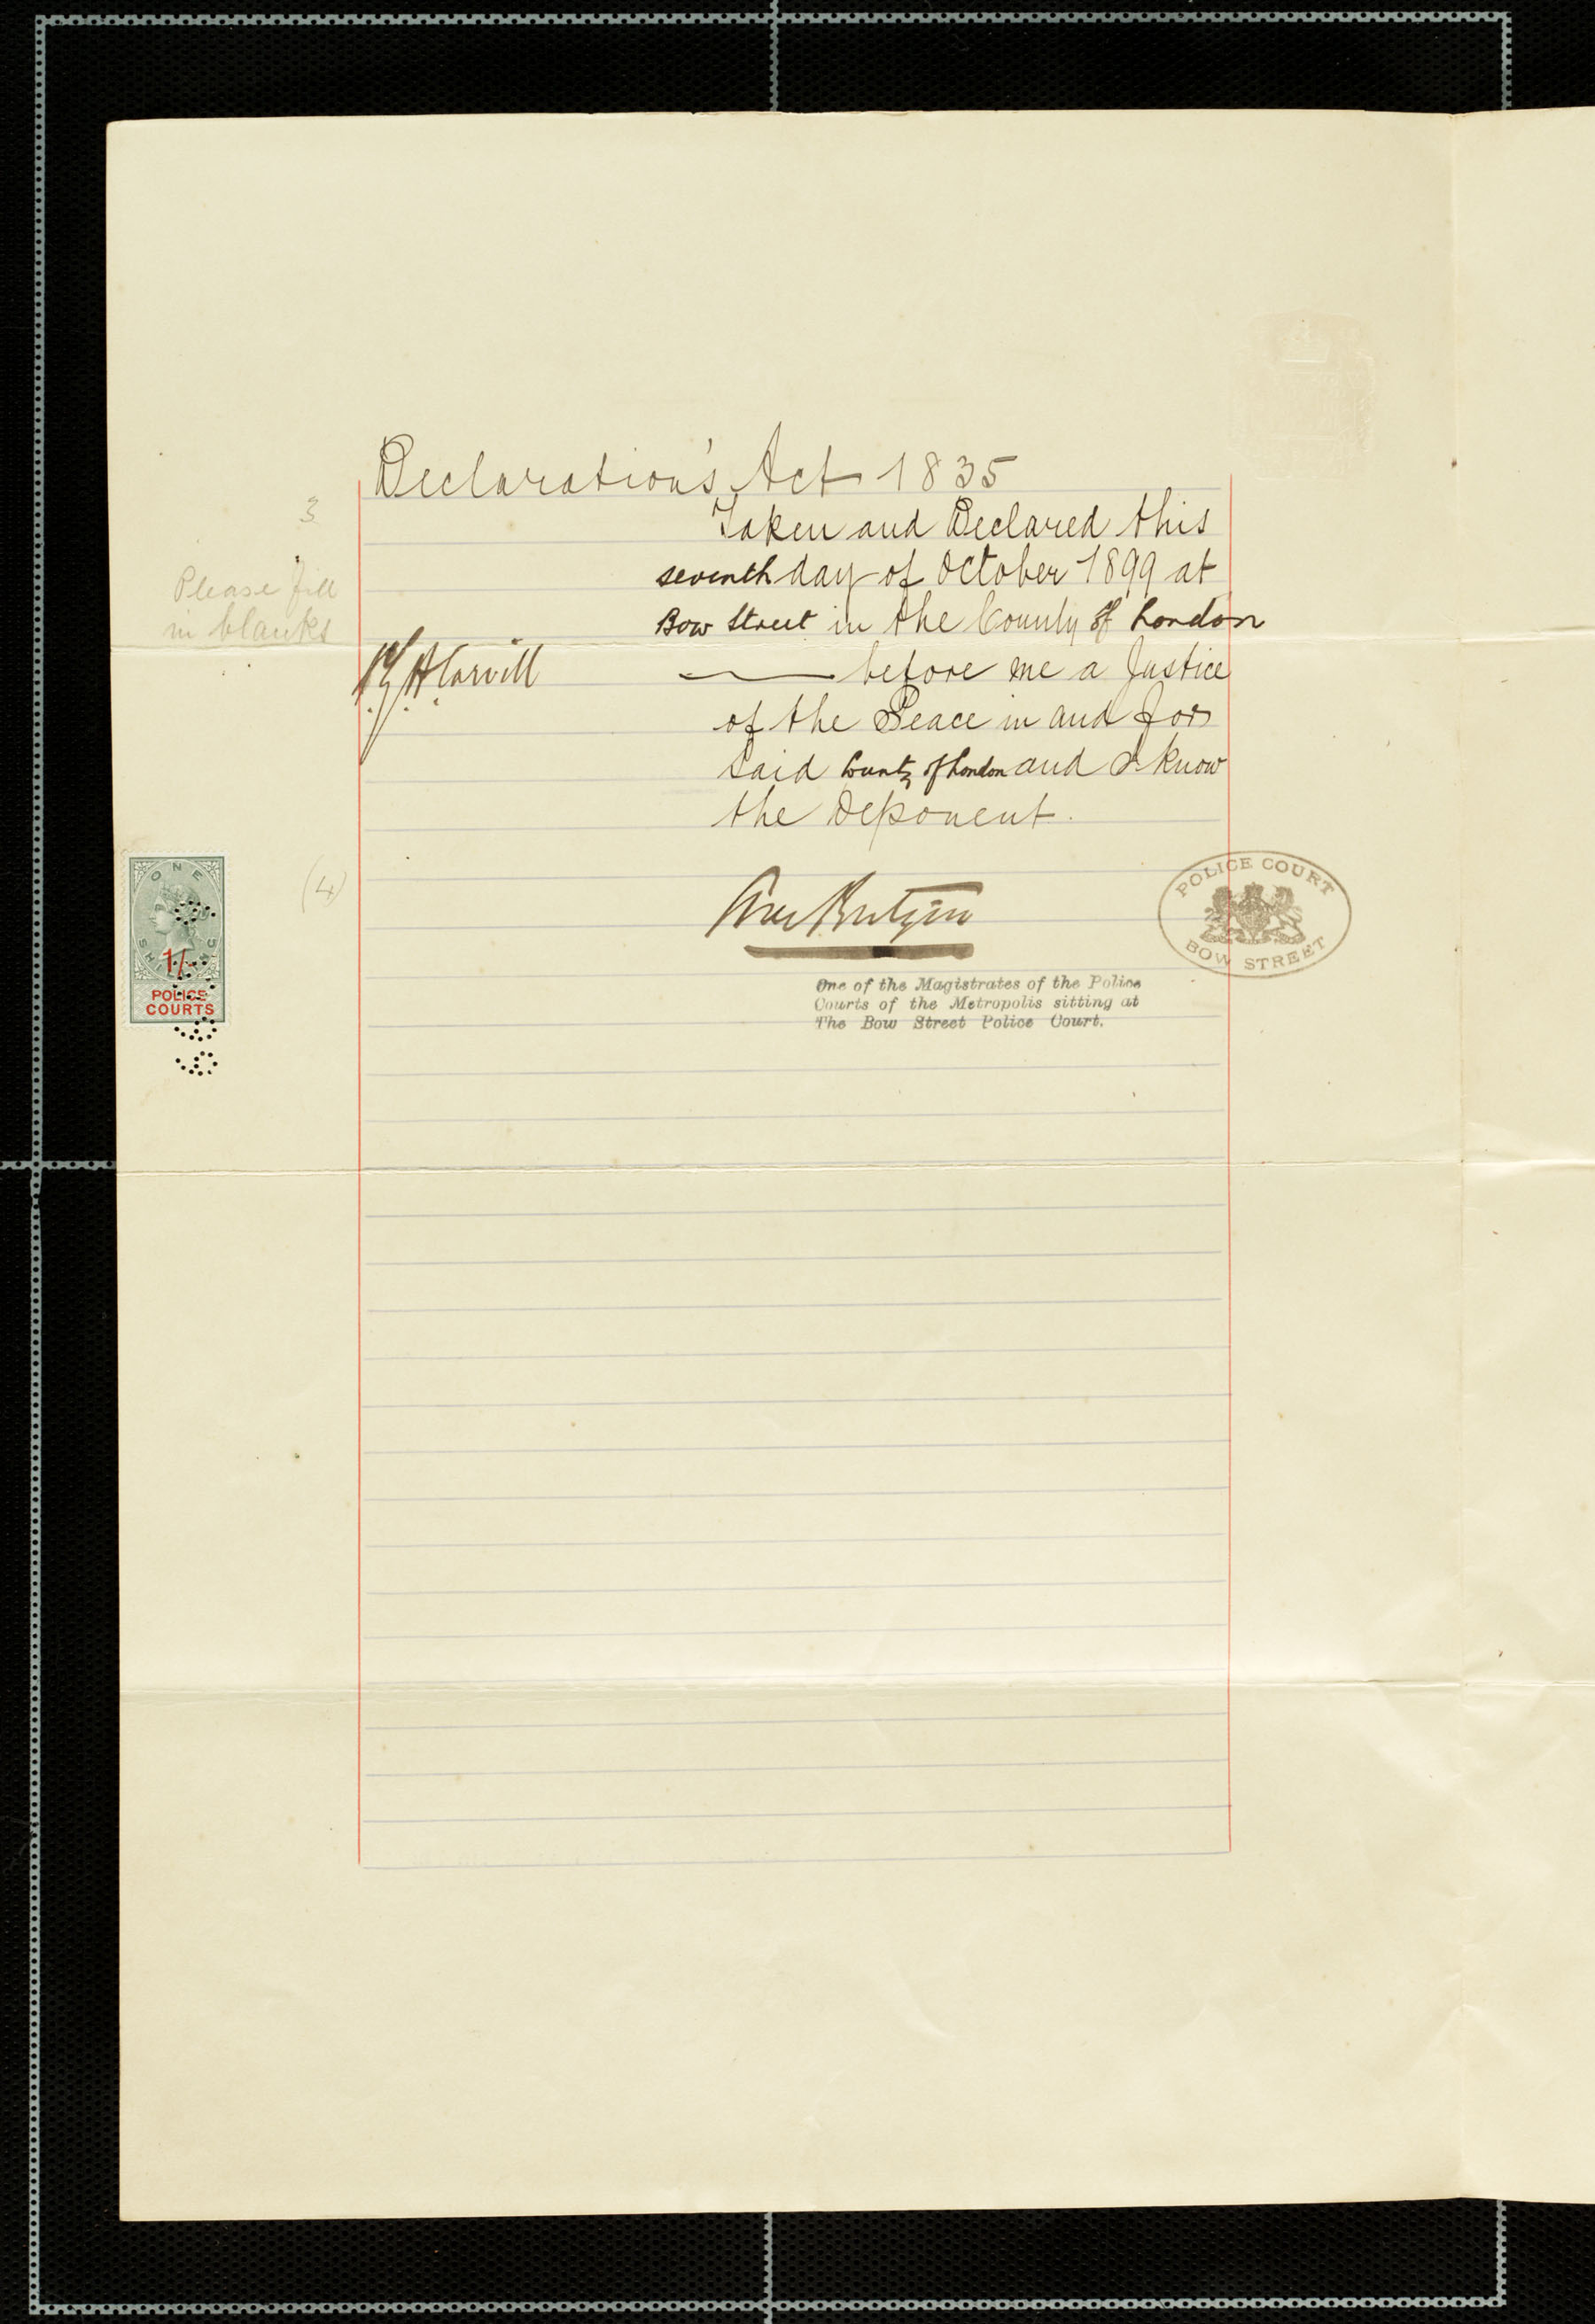 Declarations Act 1835
3
Taken and Declared this
seventh day of October 1899 at
Please fill
in blanks
Bow Street in the County of London
before me a Justice
of the Peace in and for
said County of London and I know
the Deponent.
(4)
ONE
SHILLING
1/-
POLICE
COURTS
POLICE COURT
BOW STREET
One of the Magistrates of the Police
Courts of the Metropolis sitting at
The Bow Street Police Court.